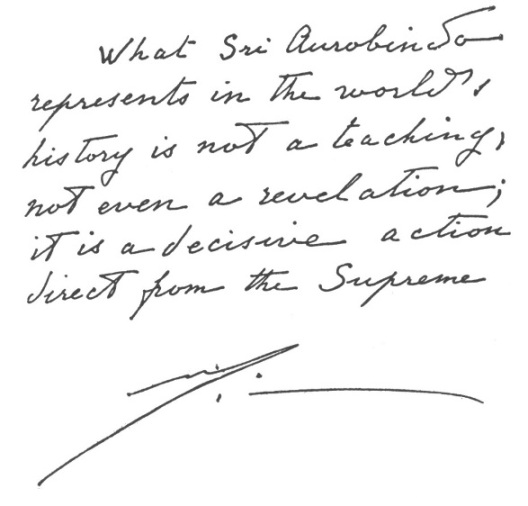 What Sri Aurobindo
represents in the world's
history is not a teaching,
not even a revelation;
it is a decisive action
direct from the Supreme